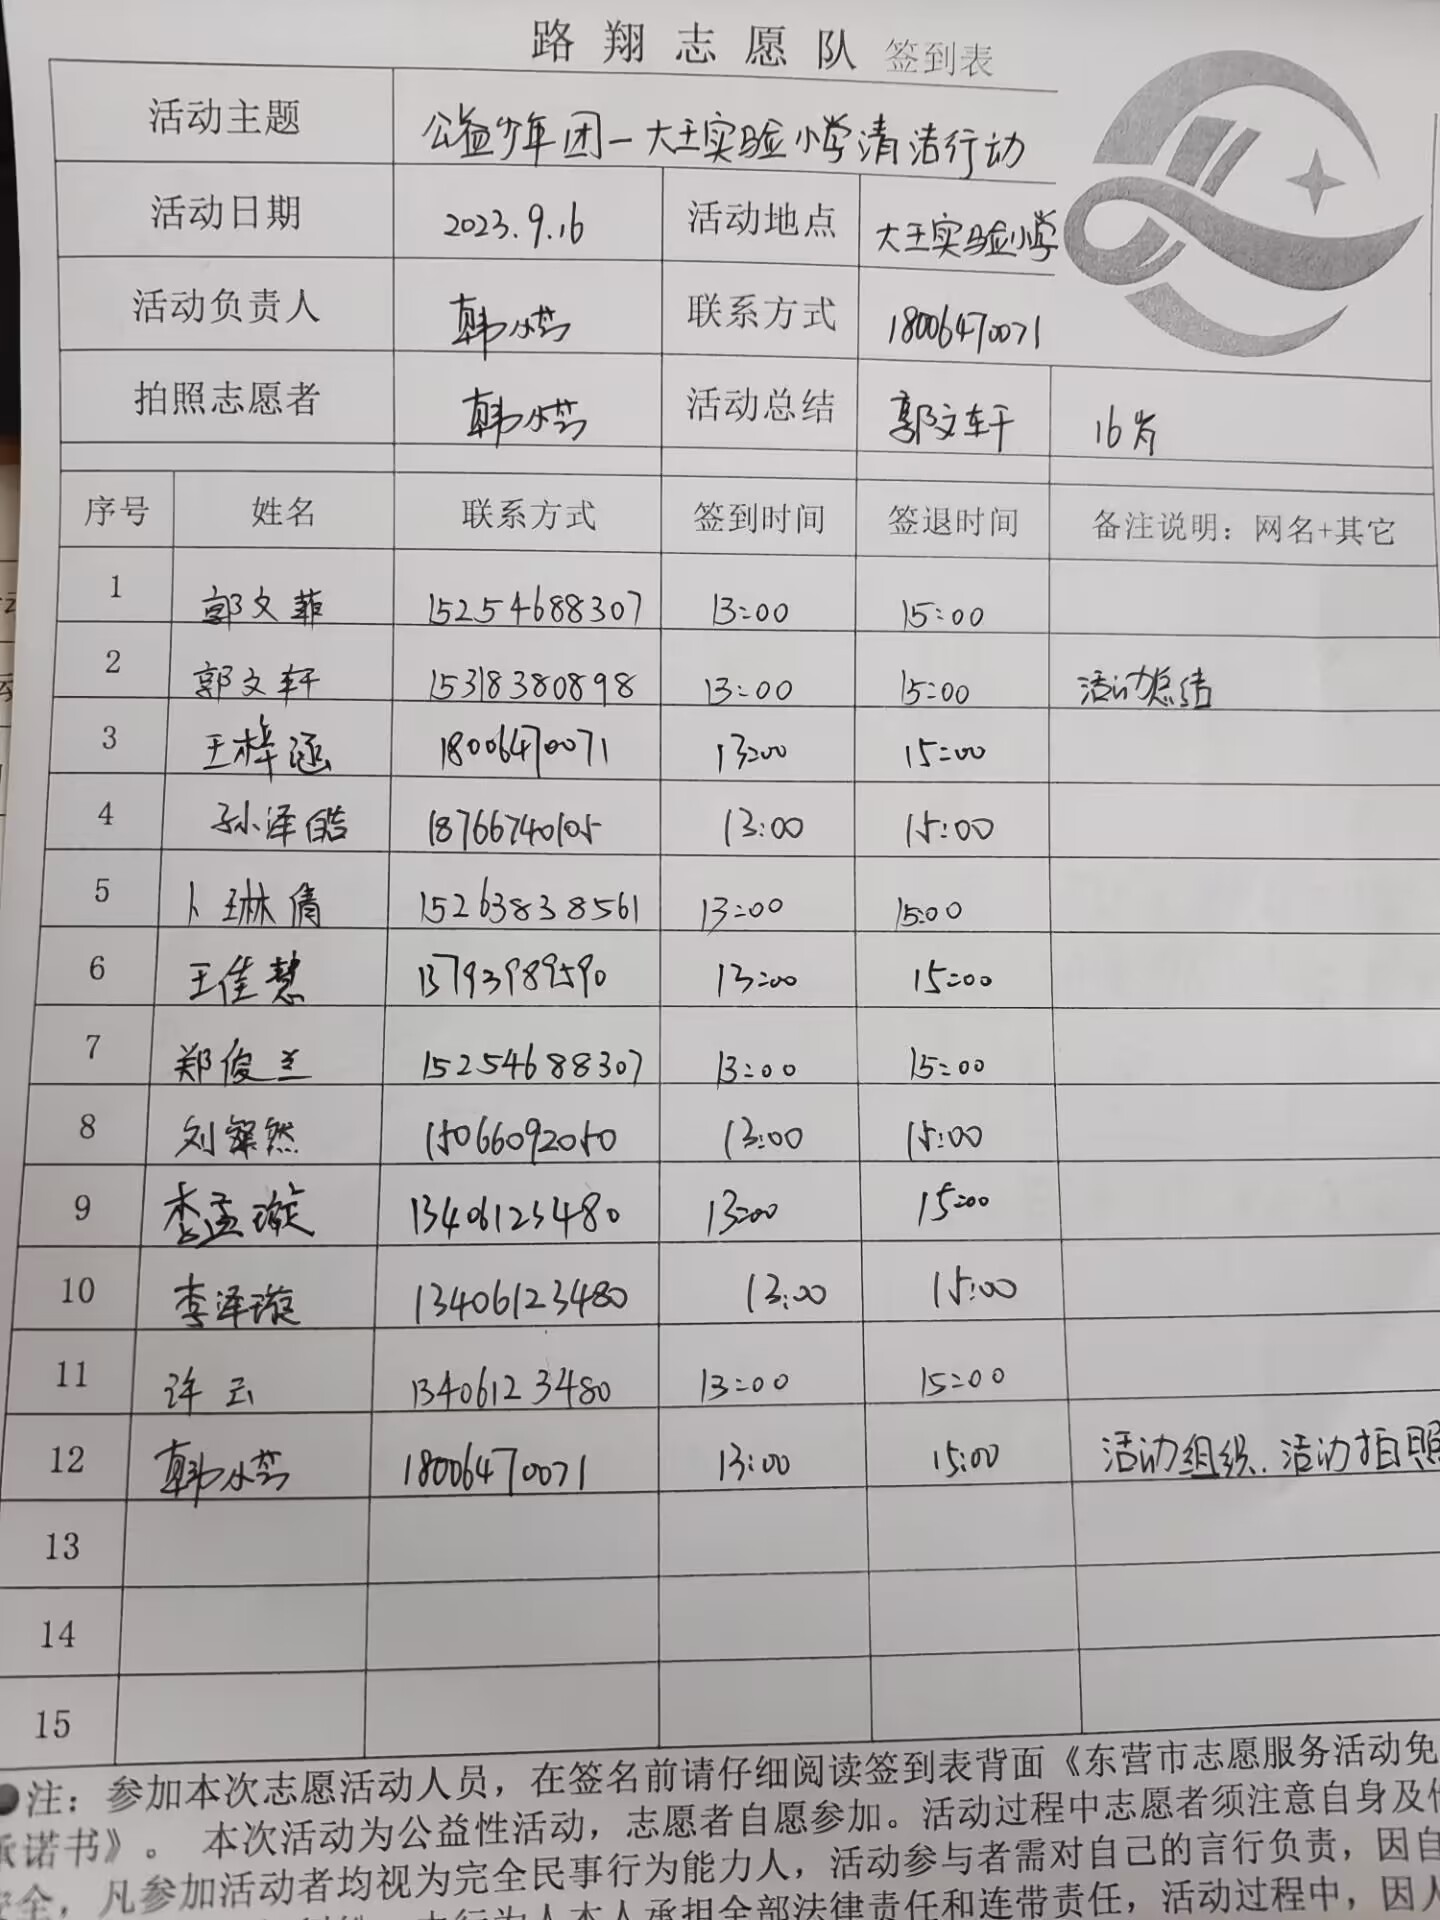 路翔志愿队 签到表
活动主题 公益少年团一大王实验小学清洁行动
活动日期 2023.9.16 活动地点 大王实验小学
活动负责人 韩小芳 联系方式 18006470071
拍照志愿者 韩小芳 活动总结 郭文轩 16岁
序号 姓名 联系方式 签到时间 签退时间 备注说明：网名+其它
1 郭文菲 15254688307 13:00 15:00
2 郭文轩 15318380898 13:00 15:00 活动总结
3 王梓涵 18006470071 13:00 15:00
4 孙泽皓 18766740105 13:00 15:00
5 卜琳倩 15263838561 13:00 15:00
6 王佳慧 13793989590 13:00 15:00
7 郑俊兰 15254688307 13:00 15:00
8 刘粲然 15066092050 13:00 15:00
9 李孟璇 13406123480 13:00 15:00
10 李泽璇 13406123480 13:00 15:00
11 许云 13406123480 13:00 15:00
12 韩小芳 18006470071 13:00 15:00 活动组织、活动拍照
13
14
15
●注：参加本次志愿活动人员，在签名前请仔细阅读签到表背面《东营市志愿服务活动免
承诺书》。 本次活动为公益性活动，志愿者自愿参加。活动过程中志愿者须注意自身及他
安全，凡参加活动者均视为完全民事行为能力人，活动参与者需对自己的言行负责，因自
本行为人本人承担全部法律责任和连带责任，活动过程中，因人